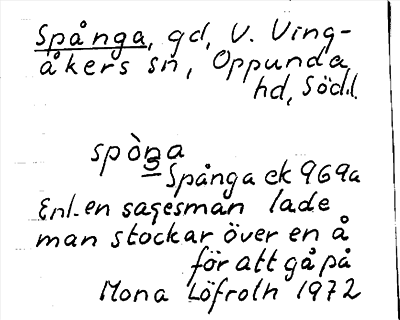 Spånga, gd, V. Ving-
åkers sn, Oppunda
hd, Södl.
spò̀ŋa
Spånga ek 969a
Enl. en sagesman lade
man stockar över en å
för att gå på
Mona Löfroth 1972